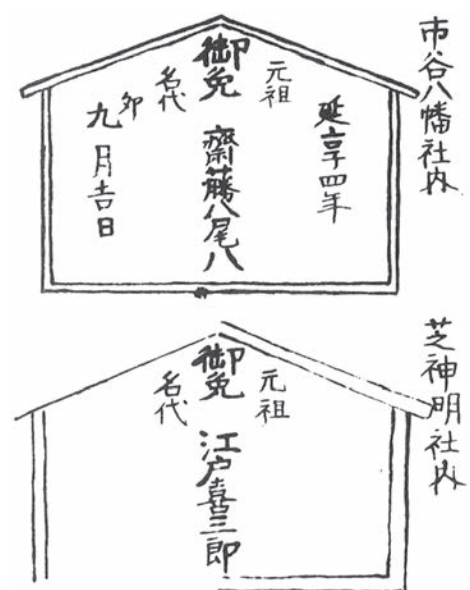 市谷八幡社内
延享四年
元祖
御免 齋藤八尾八
名代
卯
九月吉日
芝神明社内
元祖
御免 江戸喜三郎
名代